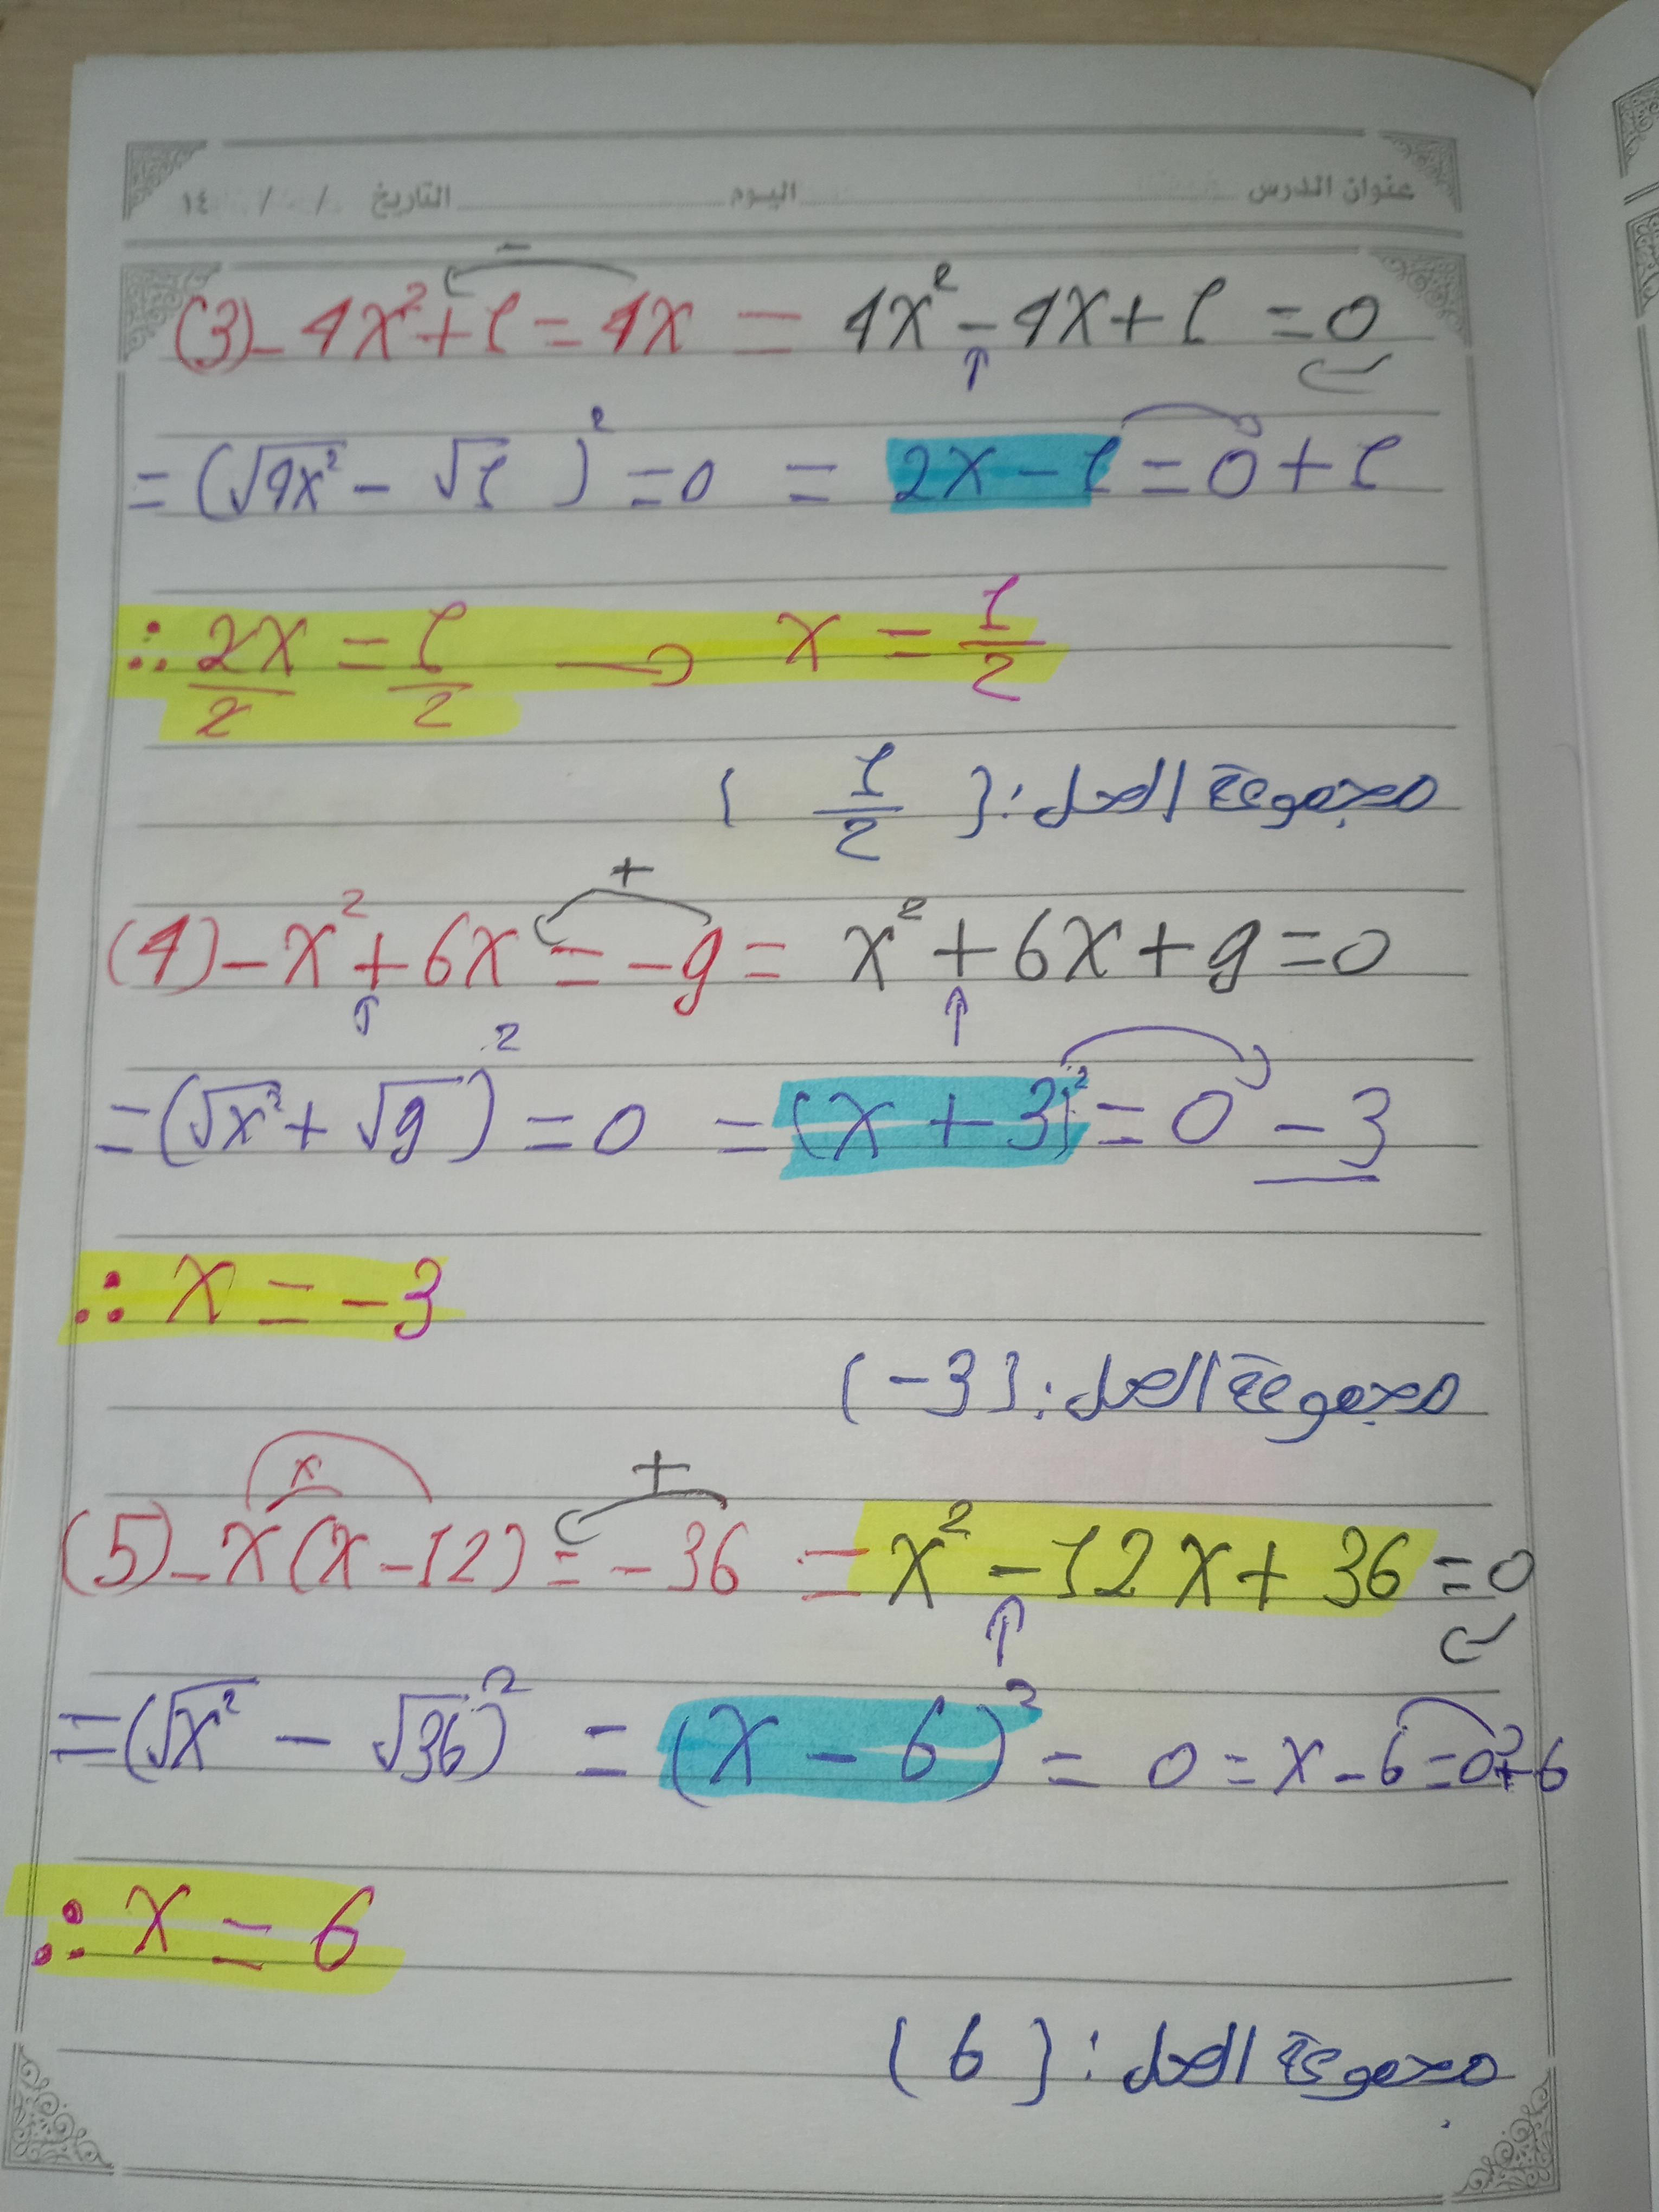 عنوان الدرس اليوم التاريخ / / ١٤
(3)- 4x²+1=4x = 4x²-4x+1=0
=(√4x² - √1)²=0 = 2x-1=0+1
∴ 2x/2 = 1/2 → x = 1/2
مجموعة الحل: {1/2}
(4)-x²+6x=-9= x²+6x+9=0
=(√x²+√9)²=0 =(x+3)²=0-3
∴ x=-3
مجموعة الحل: {-3}
(5)-x(x-12)=-36 =x²-12x+36=0
=(√x² - √36)² =(x-6)²=0=x-6=0+6
∴ x=6
مجموعة الحل: {6}